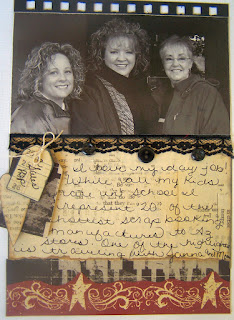 I love my day job.
While all my kids
are in school I
represent 20 of the
hottest scrapbooking
manufactures to Ng
stores. One of the highlights
is traveling with Janna